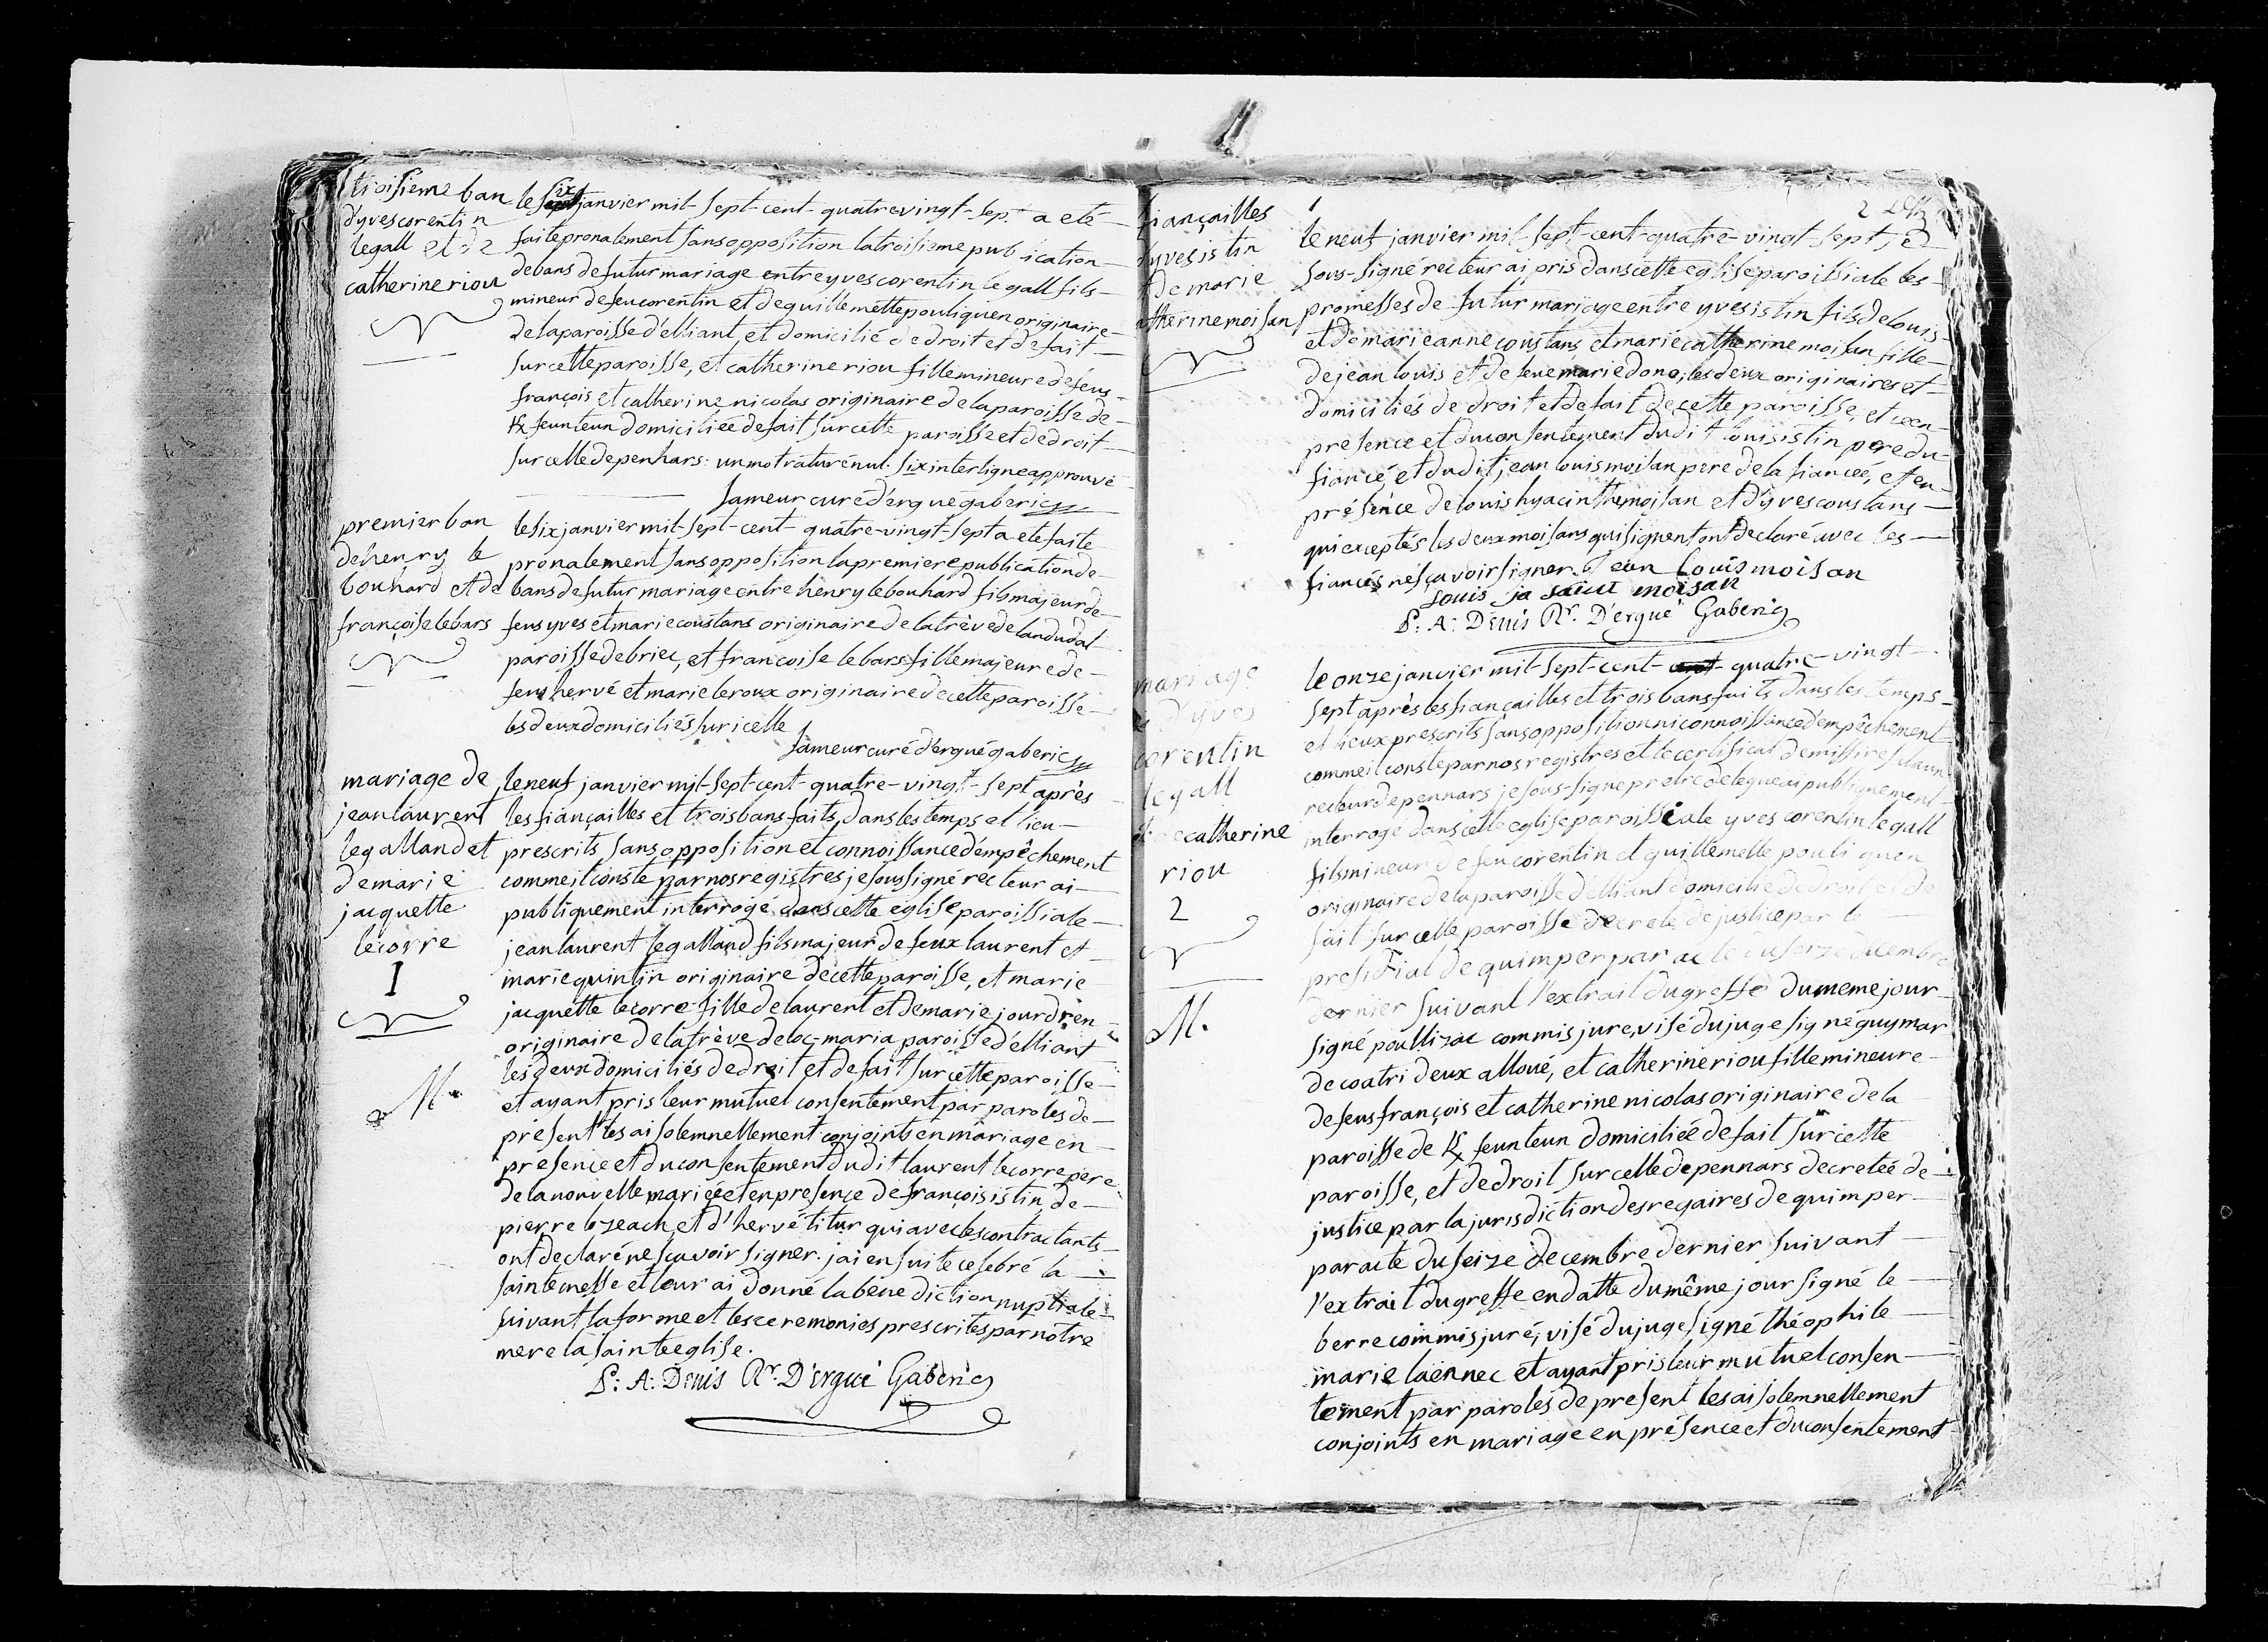 troisieme ban
d'yves corentin
le gall et de
catherine riou
le six janvier mil-sept-cent-quatrevingt-sept a eté
faite pronalement sans opposition la troisieme publication
de bans de futur mariage entre yves corentin le gall fils
mineur de feu corentin et de guillemette pouliquen originaire
de la paroisse d'elliant, et domicilié de droit et de fait
sur cette paroisse, et catherine riou fille mineure de feus
françois et catherine nicolas originaire de la paroisse de
feunteun domiciliée de fait sur cette paroisse et de droit
sur celle de penhars: un mot raturé nul. six interligne approuvé
Jameur curé d'ergué gaberic
premier ban
de henry le
bouhard et de
françoise le bars
le six janvier mil-sept-cent-quatre-vingt-sept a eté faite
pronalement sans opposition la premiere publication de
bans de futur mariage entre henry le bouhard fils majeur de
feus yves et marie coustans originaire de la trève de landudal
paroisse de briec, et françoise le bars fille majeure de
feus hervé et marie le roux originaire de cette paroisse
les deux domiciliés sur icelle
Jameur curé d'ergué gaberic
mariage de
jean laurent
le galland et
de marie
jacquette
le corre
1
M.
le neuf janvier mil-sept-cent-quatre-vingt-sept après
les fiançailles et trois bans faits, dans les temps et lieu
prescrits sans opposition et connoissance d'empêchement
comme il conste par nos registres je soussigné recteur ai
publiquement interrogé dans cette eglise paroissiale
jean laurent le galland fils majeur de feux laurent et
marie quintin originaire de cette paroisse, et marie
jacquette le corre fille de laurent et de marie jourdren
originaire de la trève de loc-maria paroisse d'elliant
les deux domiciliés de droit et de fait sur cette paroisse
et ayant pris leur mutuel consentement par paroles de
présent les ai solemnellement conjoints en mariage en
presence et du consentement dudit laurent le corre pere
de la nouvelle mariée et en presence de françois istin, de
pierre lozeach, et d'hervé titur qui avec les contractants
ont declaré ne sçavoir signer. j'ai en suite celebré la
sainte messe et leur ai donné la béne diction nuptiale
suivant la forme et les ceremonies prescrites par nôtre
mere la sainte eglise.
P: A: Denis Rr. D'ergué Gaberic
fiançailles
d'yves istin
et de marie
catherine moisan
1
2
le neuf janvier mil-sept-cent-quatre-vingt-sept, je
sous-signé recteur ai pris dans cette eglise paroissiale les
promesses de futur mariage entre yves istin fils de louis
et de marie anne coustans et marie catherine moisan fille
de jean louis et de feue marie dono, les deux originaires et
domiciliés de droit et de fait de cette paroisse, et ce en
présence et du consentement dudit louis istin pere du
fiancé, et dudit jean louis moisan pere de la fiancée, et en
présence de louis hyacinthe moisan et d'yves coustans
qui exceptés les deux moisans qui signent ont declaré avec les
fiancés ne sçavoir signer. Jean Louis moisan
Louis ja moisan
P: A: Denis Rr. D'ergué Gaberic
mariage
d'yves
corentin
le gall
et de catherine
riou
2
M.
le onze janvier mil-sept-cent- quatre-vingt
sept après les fiançailles et trois bans faits dans les temps
et lieux prescrits sans opposition ni connoissance d'empêchement
comme il conste par nos registres et le certificat de missire
recteur de pennars je sous-signé pretre delegué ai publiquement
interrogé dans cette eglise paroissiale yves corentin le gall
fils mineur de feu corentin et guillemette pouliquen
originaire de la paroisse d'elliant domicilié de droit et de
fait sur cette paroisse decreté de justice par le
presidial de quimper par acte du seize decembre
dernier suivant l'extrait du greffe du meme jour
signé poullizac commis juré, visé du juge signé guymar
de coatri deux alloué, et catherine riou fille mineure
de feus françois et catherine nicolas originaire de la
paroisse de feunteun domiciliée de fait sur cette
paroisse, et de droit sur celle de pennars decretée de
justice par la jurisdiction des regaires de quimper
par acte du seize decembre dernier suivant
l'extrait du greffe en datte du même jour signé le
berre commis juré, visé du juge signé théophile
marie laënnec et ayant pris leur mutuel consen
tement par paroles de present les ai solemnellement
conjoints en mariage en présence et du consentement